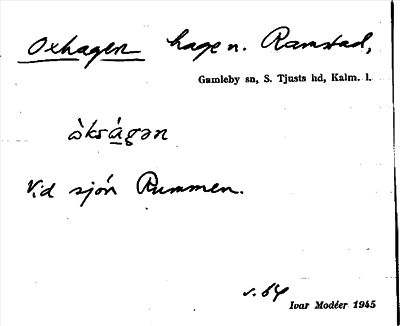 Oxhagen hage n. Ramstad,
Gamleby sn, S. Tjusts hd, Kalm. l.
Vid sjön Rummen.
s. 64
Ivar Modéer 1945